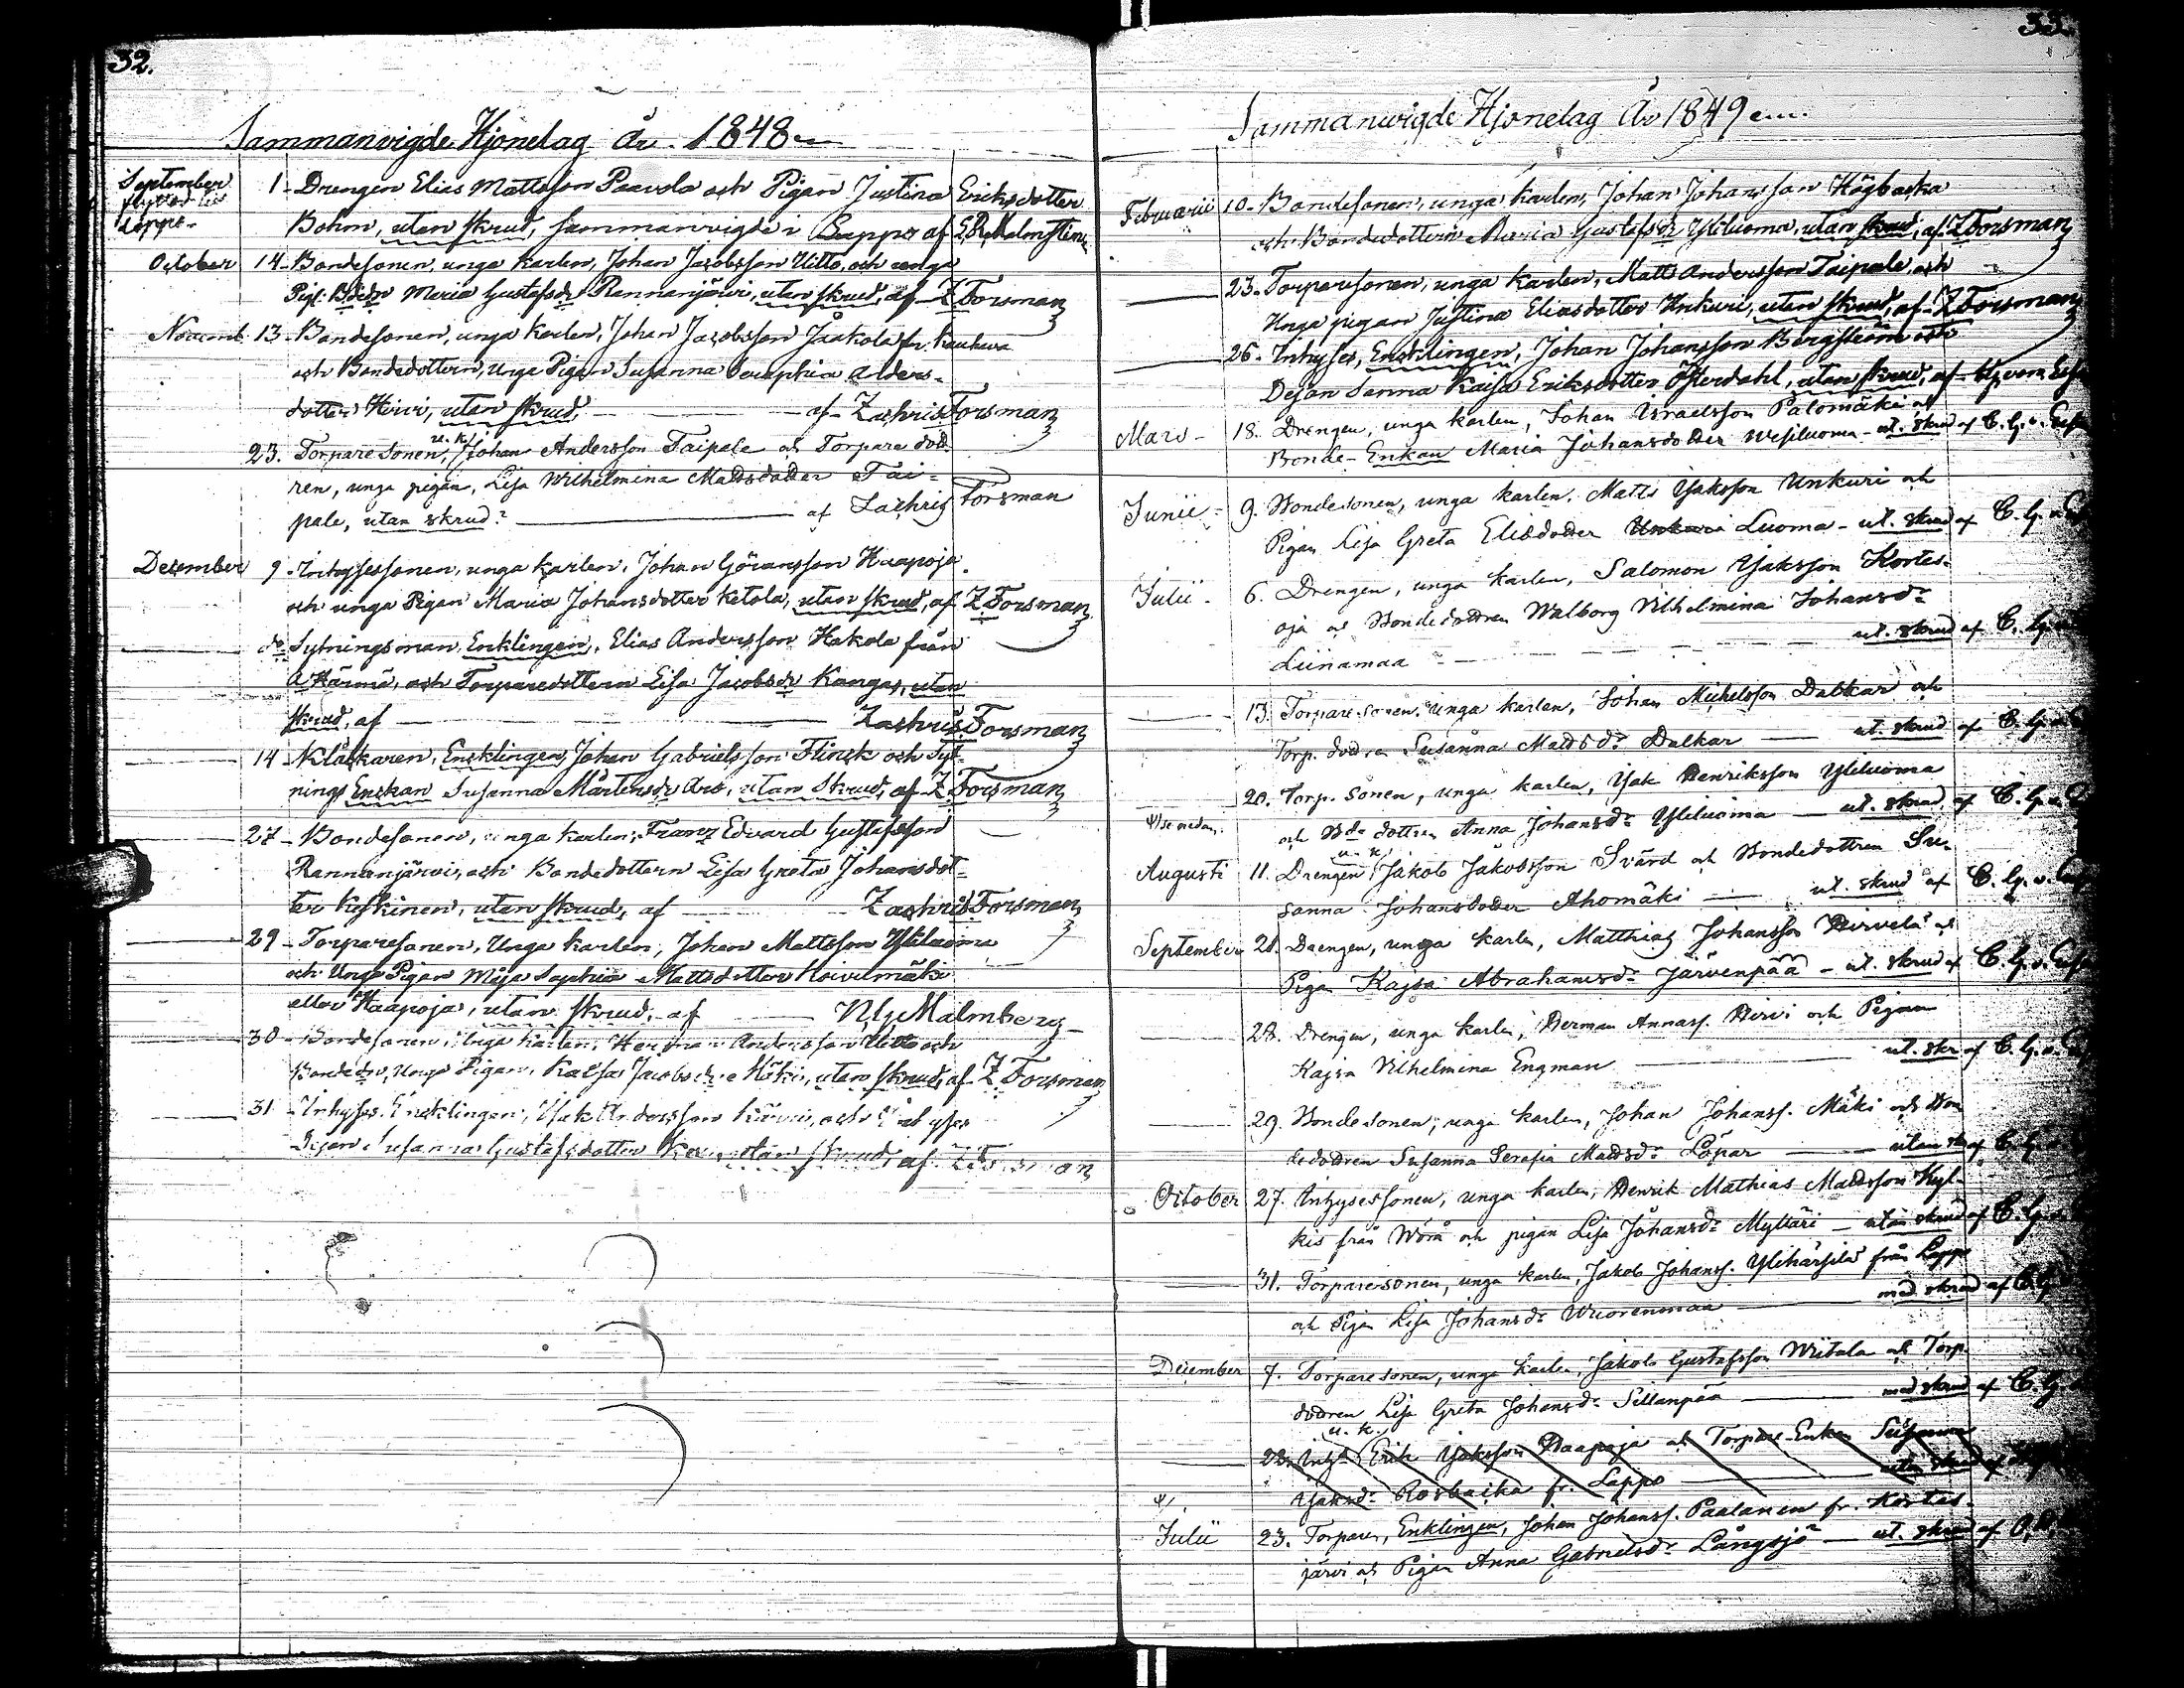 32.
Sammanvigde Hjonelag År 1848
September 1 Drengen Elias Mattsson Paavola och Pigan Justina Ericsdotter
Lappo Bohm, utan skrud, sammanvigde i Lappo af
October 14 Bondesonen, unga karlen, Johan Jacobsson Uitto, och unga
Maria Gustafsdr Rannanjärvi, utan skrud, af Z Forsman
13 Bondesonen, unga karlen, Johan Jacobsson Jaakola fr. Kauhava
och Bondedottern, unga Pigan Susanna Seraphia
dotter Hirvi, utan skrud, af Zachris Forsman
u. k.
23. Torparesonen, Johan Andersson Taipale och Torpare dott
ren, unga pigan, Lisa Wilhelmina Mattsdotter Tai=
pale, utan skrud. af Zachris Forsman
December 9 Inhysessonen, unga karlen, Johan Göransson Haapoja
och unga Pigan Maria Johansdotter Ketola, utan skrud, af Z Forsman
do Sytningsman, Enklingen, Elias Andersson Hakola från
A Härmä, och Torparedottern Lisa Jacobsdr Kangas, utan
skrud, af Zachris Forsman
14 Klåckaren, Encklingen Johan Gabrielsson Flinck och Syt-
nings Enckan Susanna Mårtensdr Aro, utan skrud, af Z. Forsman
27 Bondesonen, unga karlen, Franz Edvard Gustafsson
Rannanjärvi, och Bondedottern Lisa Greta Johansdot=
ter Keskinen, utan skrud, af Zachris Forsman
29 Torparesonen, Unga karlen, Johan Mattsson Yliluoma
och Unga Pigan Maja Sophia Mattsdotter Koivumäki
eller Haapoja, utan skrud, af Malmberg
30 Bondesonen, Unga karlen, Herman Andersson Uitto och
Bondedr, Unga Pigan, Kaisa Jacobsdr Mäki, utan skrud, af Z. Forsman
31 Inhyses Encklingen, Isak Andersson och Inhyses
Pigan Susanna Gustafsdotter utan skrud, af Z. Forsman
33.
Sammanvigde Hjonelag År 1849
Februarii 10 Bondesonen, unga karlen, Johan Johansson Högbacka
och Bondedottern Maria Gustafsdr Yliluoma, utan skrud, af Z Forsman
23. Torparesonen, unga karlen, Matts Andersson Taipale, och
Unga pigan Justina Eliasdotter Unkuri, utan skrud, af Z Forsman
26. Inhyses, Encklingen, Johan Johansson Bergström och
Pejan Sanna Kaisa Ericsdotter Österdahl, utan skrud, af
Mars 18. Drengen, unga karlen, Johan Israelsson Palomäki och
Bonde-Enkan Maria Johansdotter Wesiluoma - ut. skrud af C. G. v.
Junii 9. Bondesonen, unga karlen, Matts Isaksson Unkuri och
Pigan Lisa Greta Eliedotter Unkuri Luoma - ut. skrud af C. G. v.
Julii 6. Drengen, unga karlen, Salomon Isaksson Kortes-
oja och Bondedottren Walborg Wilhelmina Johansdr
Liinamaa ut. skrud af C. G.
13. Torparesonen, unga karlen, Johan Michelsson Dalkar och
Torp. dottren Susanna Mattsdr Dalkar ut. skrud af C. G. v.
20. Torp. sonen, unga karlen, Isak Henriksson Yliluoma
och Bde dottren Anna Johansdr Yliluoma ut. skrud af C. G. v.
u. k.
Augusti 11. Drengen, Jakob Jakobsson Svärd och Bondedottren Su-
sanna Johansdotter Ahomäki ut. skrud af C. G. v.
September 21. Drengen, unga karlen, Matthias Johansson Hirvelä och
Pigan Kajsa Abrahamsdr Järvenpää - ut. skrud af C. G. v.
28. Drengen, unga karlen, Herman Annass. Hirvi och Pigan
Kajsa Vilhelmina Engman ut. skr af C. G. v.
29. Bondesonen, unga karlen, Johan Johanss. Mäki och Bon
dedottren Susanna Serafia Mattsdr Löpar utan skr af C. G.
October 27. Inhysessonen, unga karlen, Henrik Mathias Mattsson Kyl-
kis från Wörå och pigan Lisa Johansdr Mylläri - utan skrud af C. G.
31. Torparesonen, unga karlen, Jakob Johanss. Ylihärsilä från Lappo
och Pigan Lisa Johansdr Wuorenmaa med skrud af C. G.
December 7. Torparesonen, unga karlen, Jakob Gustafsson Wiitala och Torp.
dottren Lisa Greta Johansdr Sillanpää med skrud af C. G.
u. k.
22. Inhs Erik Isaksson Haapoja och Torpare-Enkan Susanna
Isaksdr Rosbacka fr. Lappo utan skrud af
Julii 23. Torparen, Enklingen, Johan Johanss. Paalanen fr. Kortes-
järvi och Pigan Anna Gabrielsdr Långsjö - ut. skrud af